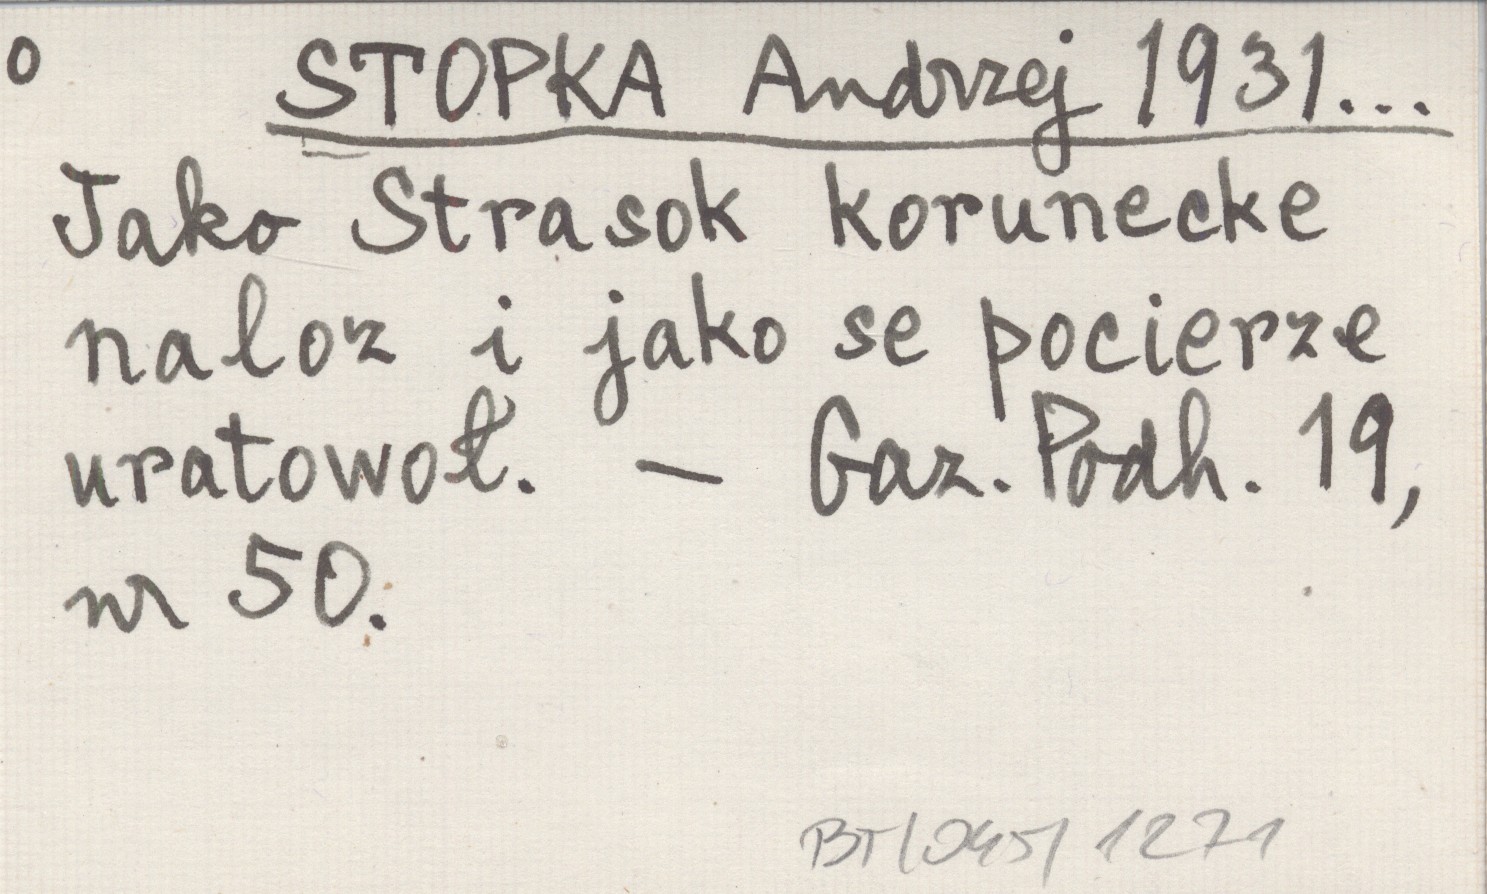 o STOPKA Andrzej 1931...
Jako Strasok korunecke
naloz i jako se pocierze
uratowoł. — Gaz. Podh. 19,
nr 50.
BT/045/ 1271